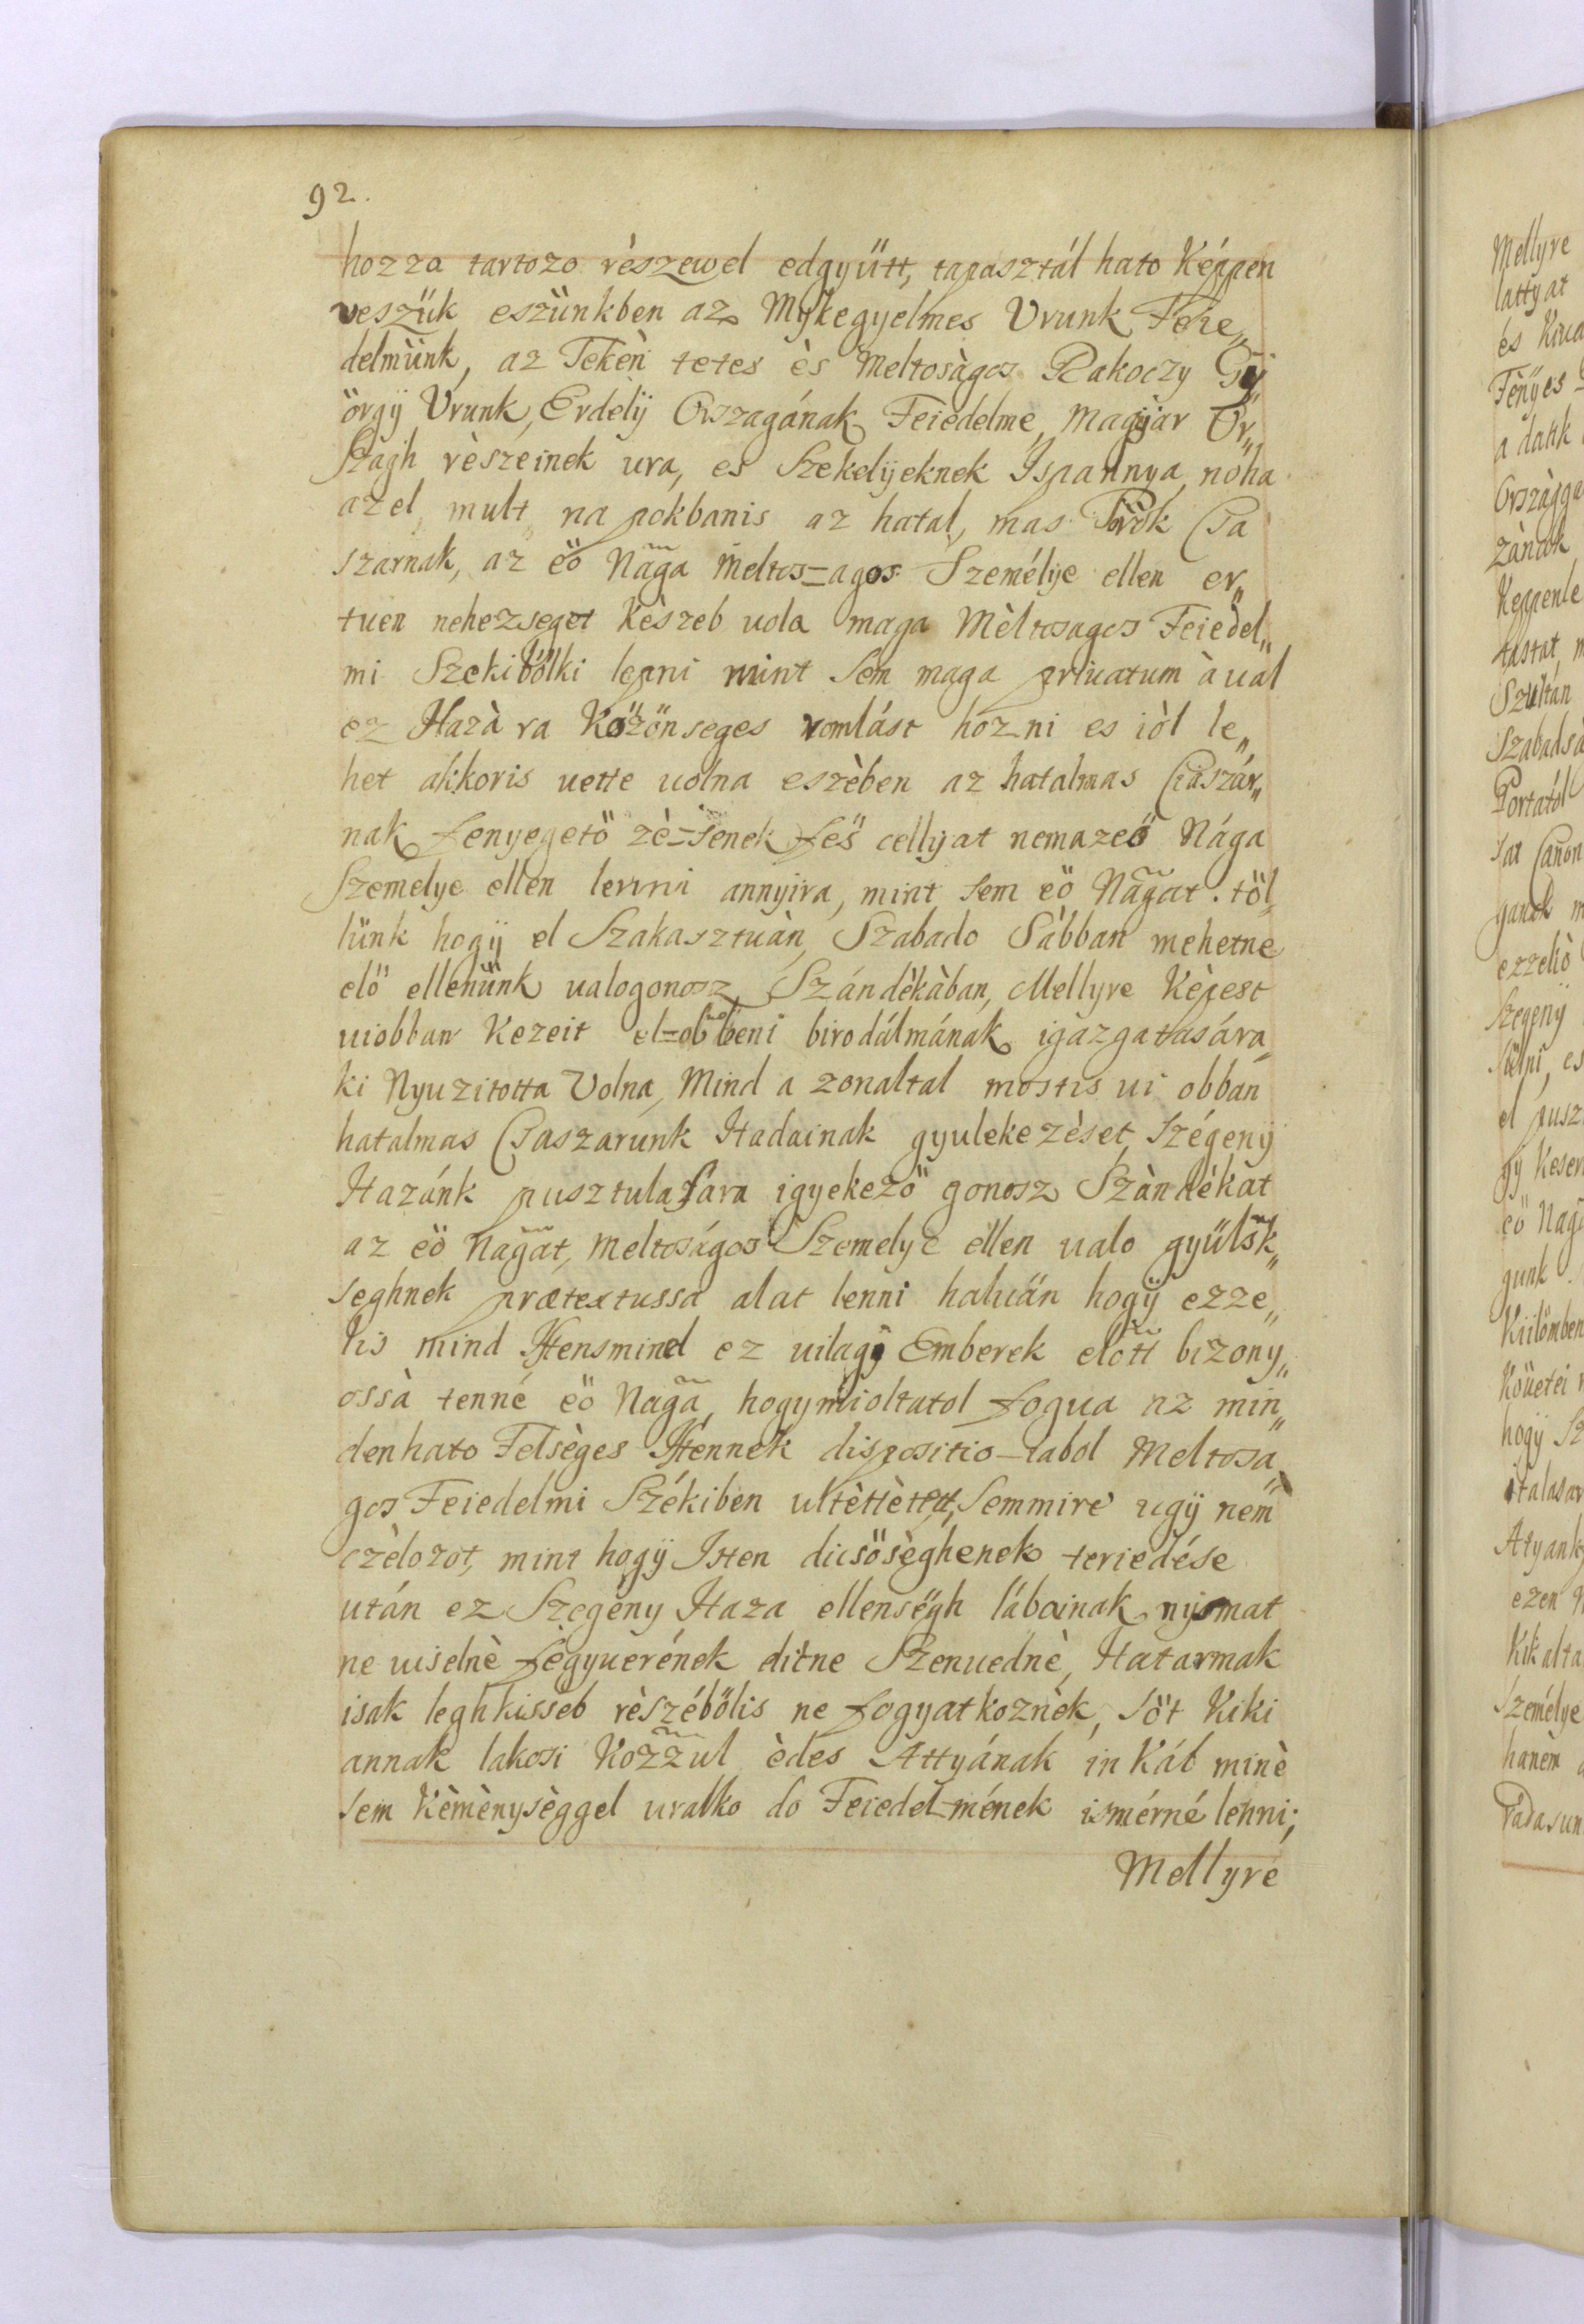 92.
hozza tartozo rèszewel edgyütt, tapasztál hato Képpen
veszük eszünkben az Mÿkegyelmes Vrunk Feie„
delmünk, az Tekèn tetes ès Meltosàgos Rakoczy Gÿ„
örgÿ Vrunk, Erdélÿ Orszagának Feiedelme, Magÿar Or„
szagh rèszeinek ura, es Szekelÿeknek Ispannya, nöha
az el, mult, na pokbanis az hatal, mas Török Csa
szarnak, az eö Nãga Meltos=agos Személÿe ellen er„
tuen nehezseget Kèszeb uola maga Mèltosagos Feiedel„
mi Szekibölki lepni mint sem maga priuatum àual
ez Hazà ra Közönseges romlást hozni es iòl le„
het akkoris uette uolna eszèben az hatalmas Csiaszár„
nak fenyegetö zè=senek feö cellÿat nemazeö Nága
Szemelye ellen lenni annÿira, mint sem eö Nãgat. töl„
lünk hogÿ el Szakasztuàn, Szabado Sábban mehetne
elö ellenünk ualogonosz, Szándèkàban, Mellyre Kèpest
uiobban Kezeit el=obbeni birodálmának igazgatasára„
ki Nyuzitotta Volna, Mind a zonaltal mostis ui obban
hatalmas Csaszarunk Hadainak gyulekezèset, szégenÿ
Hazánk pusztulasára igyekezö gonosz Szàndékat
az eö Nãgat, Meltoságos Szemelye ellen ualo gyülsk„
seghnek prætextussa alat lenni haluän hogÿ ezze„
lis mind Istensmind ez uilagÿ Emberek elött bizony„
ossà tenné eö Nãga, hogymioltatol fogua az min„
denhato Felsèges Istennek dispositio-iabol Meltosa„
gos Feiedelmi Székiben ultèttètet, Semmire ugÿ nem
czèlozot, mint hogÿ Isten dicsösèghenek teriedése
után ez Szegény Haza ellenségh lábainak nyomat
ne uiselnè fegyuerének ditne Szenuednè, Hatarmak
isak leghkisseb rèszébölis ne fogyatkoznék, söt Kiki
annak lakosi Kozzul èdes Attyának in Káb minè
sem Kèmènysèggel uralko do Feiedel-mének ismérné lenni;
Mellyre